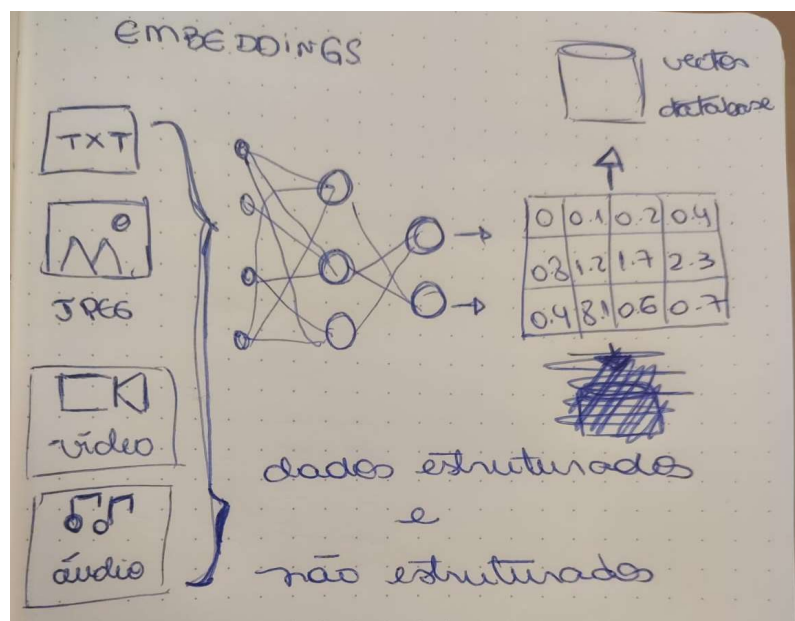 EMBEDDINGS
vector
database
TXT
JPEG
vídeo
áudio
0 0.1 0.2 0.4
0.8 1.2 1.7 2.3
0.4 8.1 0.6 0.7
dados estruturados
e
não estruturados